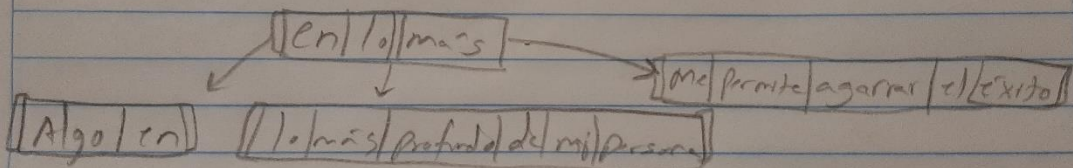 en lo más
me permite agarrar el éxito
Algo en
lo más profundo de mi persona